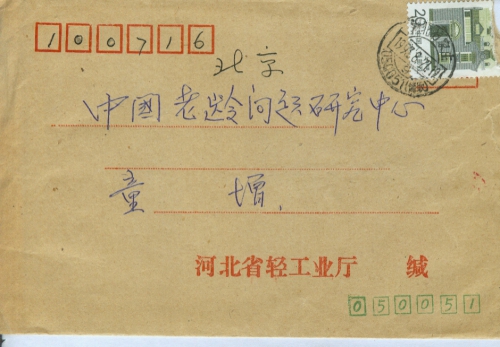 100716
北京
中國老龄问题研究中心
童增.
河北省轻工业厅 缄
050051